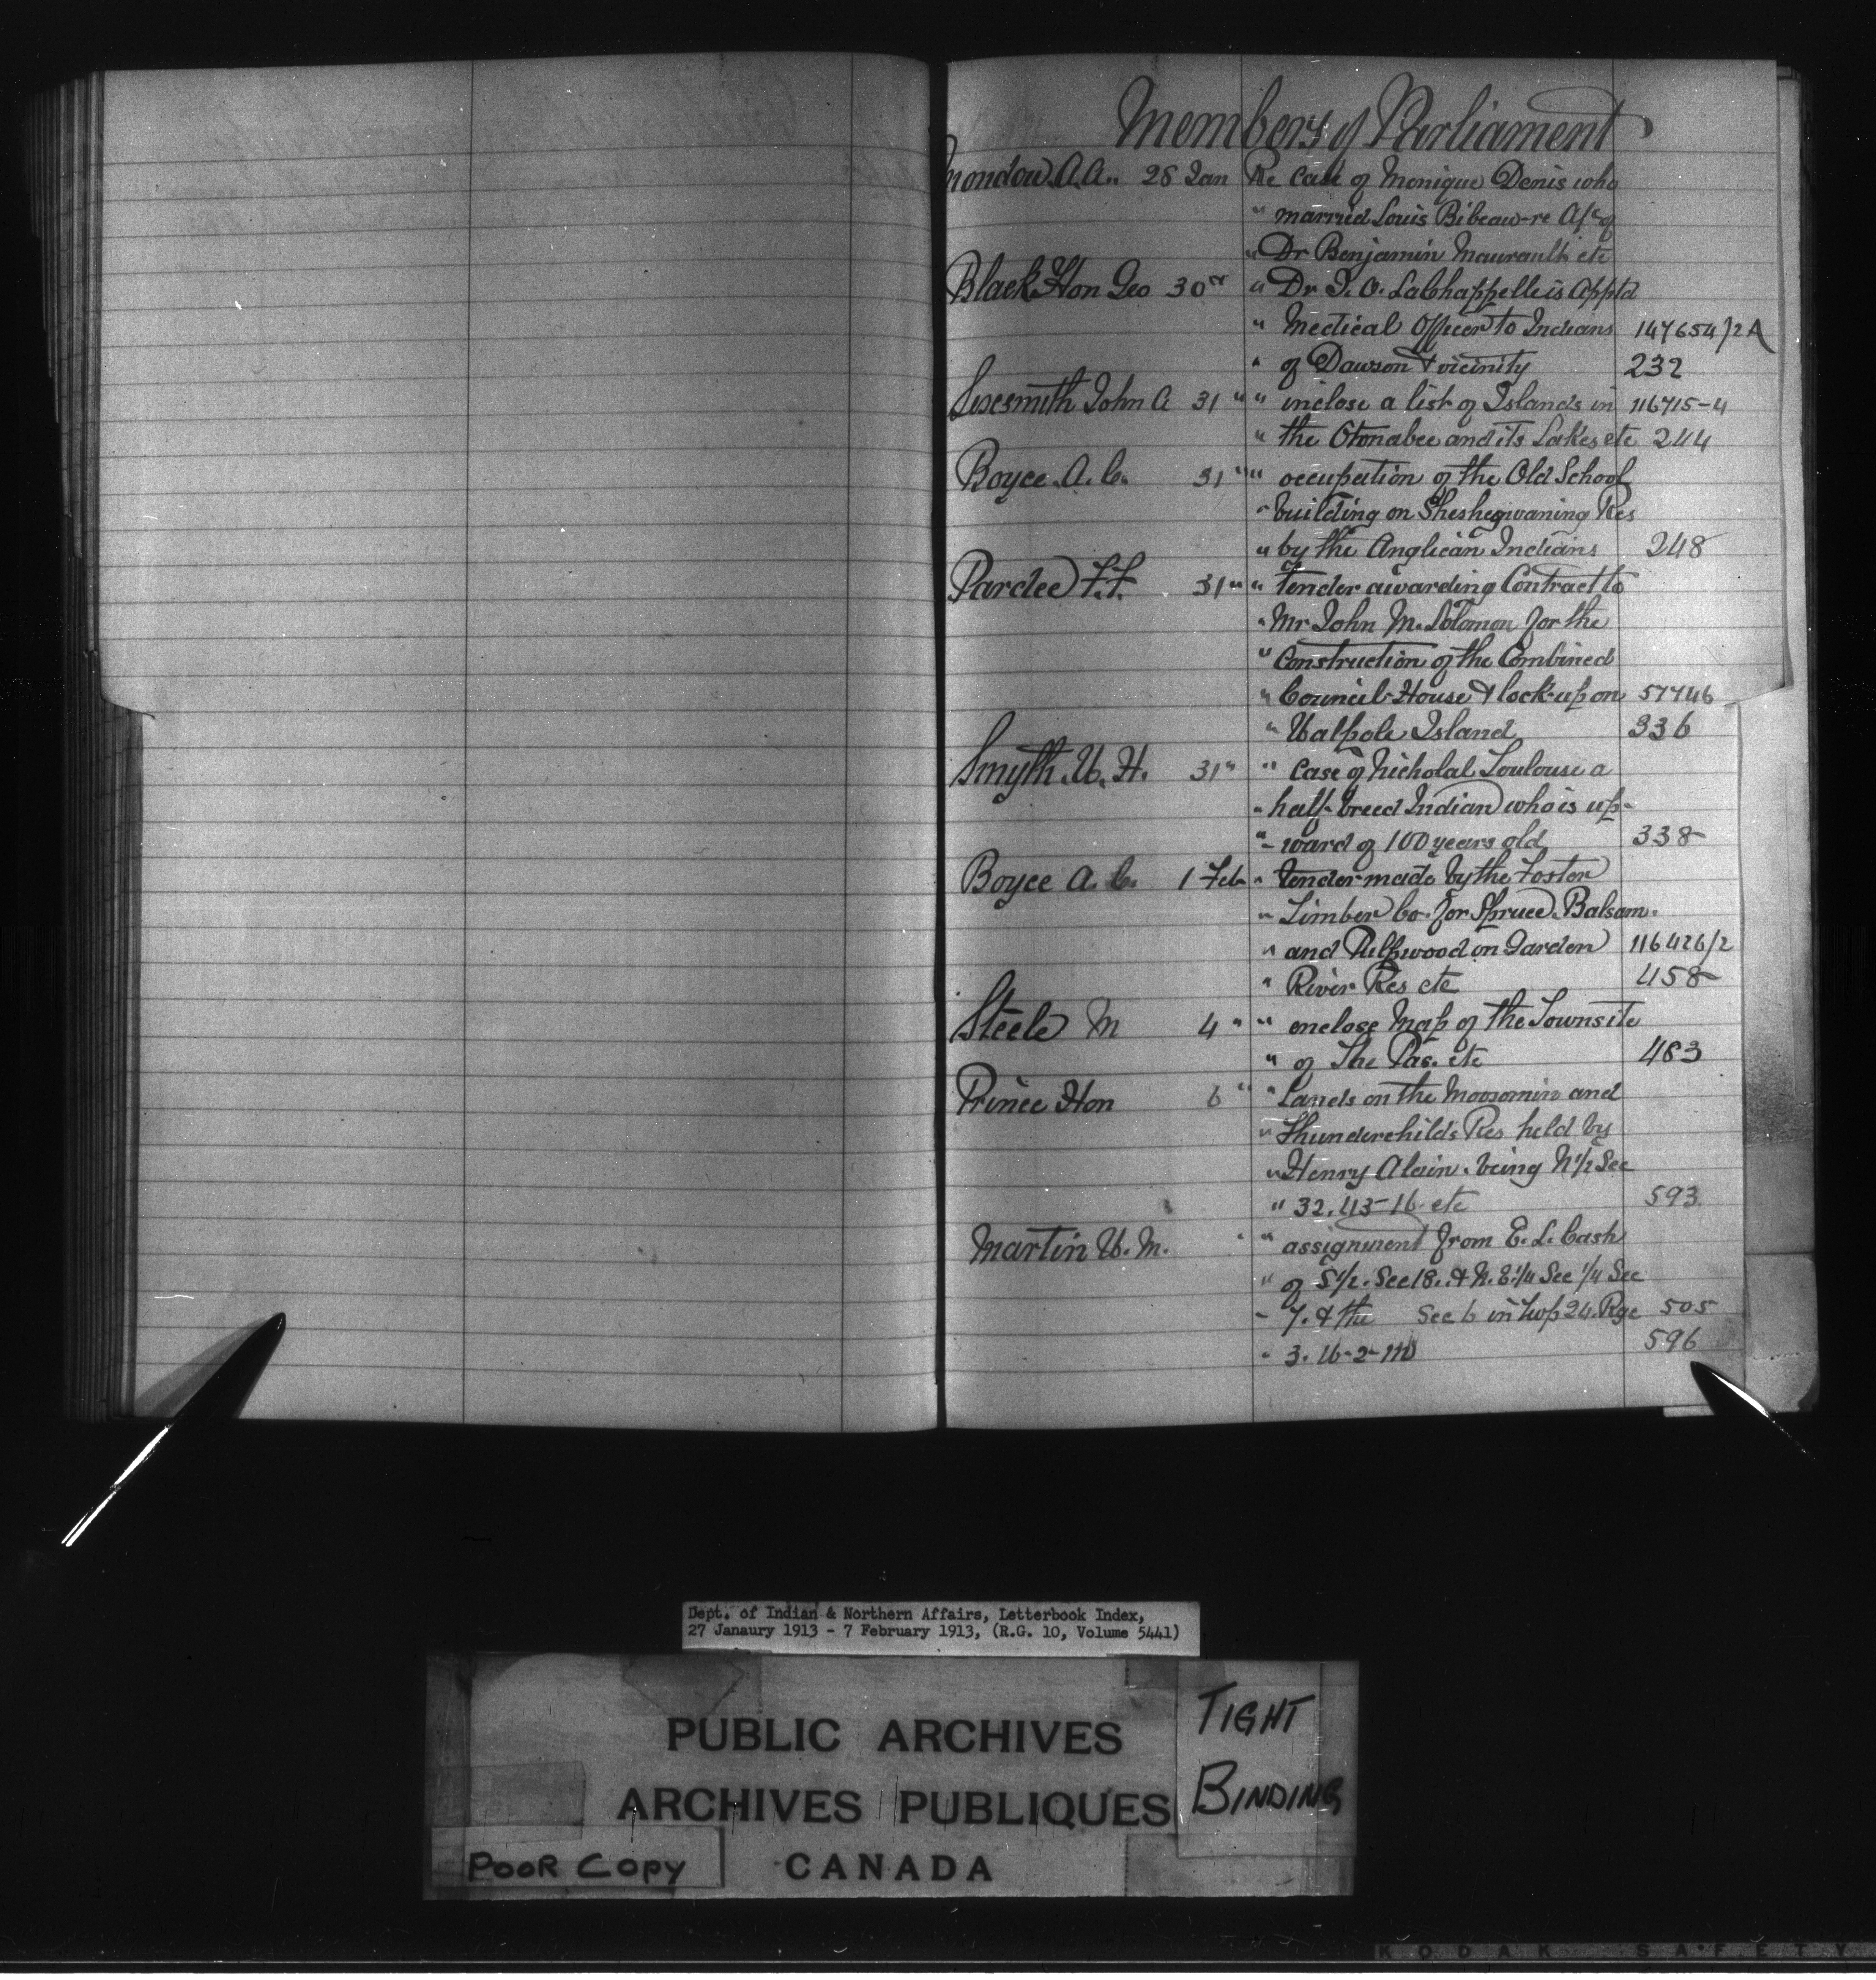 Members of Parliament
Mondou A.A. 28 Jan Re Case of Monique Denis who
" married Louis Bibeau - re A/c of
" Dr Benjamin Maurault etc
Black Hon Geo 30 " " Dr. J. O. LaChappelle is App'td
" Medical Officer to Indians 147654/2A
" of Dawson & vicinity 232
Sexsmith John A 31 " " inclose a list of Islands in 116715-4
" the Otonabee and its Lakes etc 244
Boyce A. C. 31 " " occupation of the Old School
" building on Sheshegwaning Res
" by the Anglican Indians 248
Pardee F.F. 31 " " tender awarding Contract to
" Mr John M. Solomon for the
" Construction of the Combined
" Council-House & lock-up on 57746
" Walpole Island 336
Smyth W. H. 31 " " Case of Nicholas Toulouse a
" half-breed Indian who is up-
" ward of 100 years old 338
Boyce A. C. 1 Feb " tender made by the Foster
" Timber Co. for Spruce, Balsam
" and Pulpwood on Garden 116426/2
" River Res etc 458
Steele M 4 " " enclose Map of the Townsite
" of The Pas. etc 483
Prince Hon 6 " " Lands on the Moosomin and
" Thunderchild's Res held by
" Henry Alain. being N 1/2 Sec
" 32. 43-16. etc 593
Martin W. M. " " assignment from E. L. Cash
" of S 1/2. Sec 18. & N. E. 1/4 Sec 1/4 Sec
" 7. & the Sec 6 in Twp 24. Rge 505
" 3. W-2-M 596
Dept. of Indian & Northern Affairs, Letterbook Index,
27 Janaury 1913 - 7 February 1913, (R.G. 10, Volume 5441)
PUBLIC ARCHIVES
ARCHIVES PUBLIQUES
CANADA
TIGHT
BINDING
POOR COPY
KODAK SAFETY